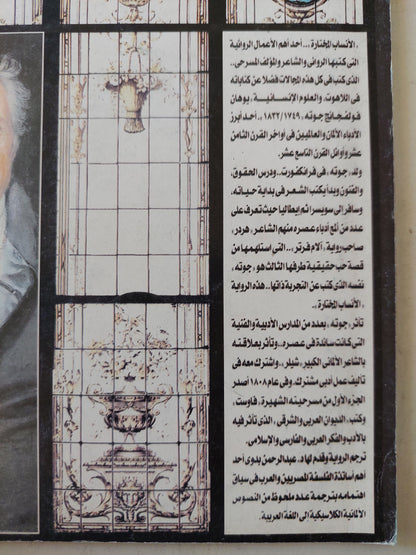 «الأنساب المختارة»... أحد أهم الأعمال الروائية
التى كتبها الروائى والشاعر والمؤلف المسرحى..
الذى كتب فى كل هذه المجالات فضلا عن كتاباته
فى اللاهوت، والعلوم الإنسانية، يوهان
فولفجانج جوته، «١٨٣٢/١٧٤٩»، أحد أبرز
الأدباء الألمان والعالميين فى أواخر القرن الثامن
عشر وأوائل القرن التاسع عشر.
ولد «جوته» فى فرانكفورت.. ودرس الحقوق
والفنون وبدأ يكتب الشعر فى بداية حياته،
وسافر إلى سويسرا ثم إيطاليا حيث تعرف على
عدد من ألمع أدباء عصره منهم الشاعر «هردر»
صاحب رواية «آلام فرتر»... التى استلهمها من
قصة حب حقيقية طرفها الثالث هو «جوته»
نفسه الذى كتب عن التجربة ذاتها.. هذه الرواية
«الأنساب المختارة».
تأثر «جوته» بعدد من المدارس الأدبيه والفنية
التى كانت سائدة فى عصره.. وتأثر بعلاقته
بالشاعر الألمانى الكبير «شيلر» واشترك معه فى
تأليف عمل أدبى مشترك. وفى عام ١٨٠٨ أصدر
الجزء الأول من مسرحيته الشهيرة «فاوست»
وكتب «الديوان العربى والشرقى» الذى تأثر فيه
بالأدب والفكر العربى والفارسى والإسلامى.
ترجم الرواية وقدم لها د. عبدالرحمن بدوى أحد
أهم أساتذة الفلسفة المصريين والعرب فى سياق
اهتمامه بترجمة عدد ملحوظ من النصوص
الألمانية الكلاسيكية إلى اللغة العربية.